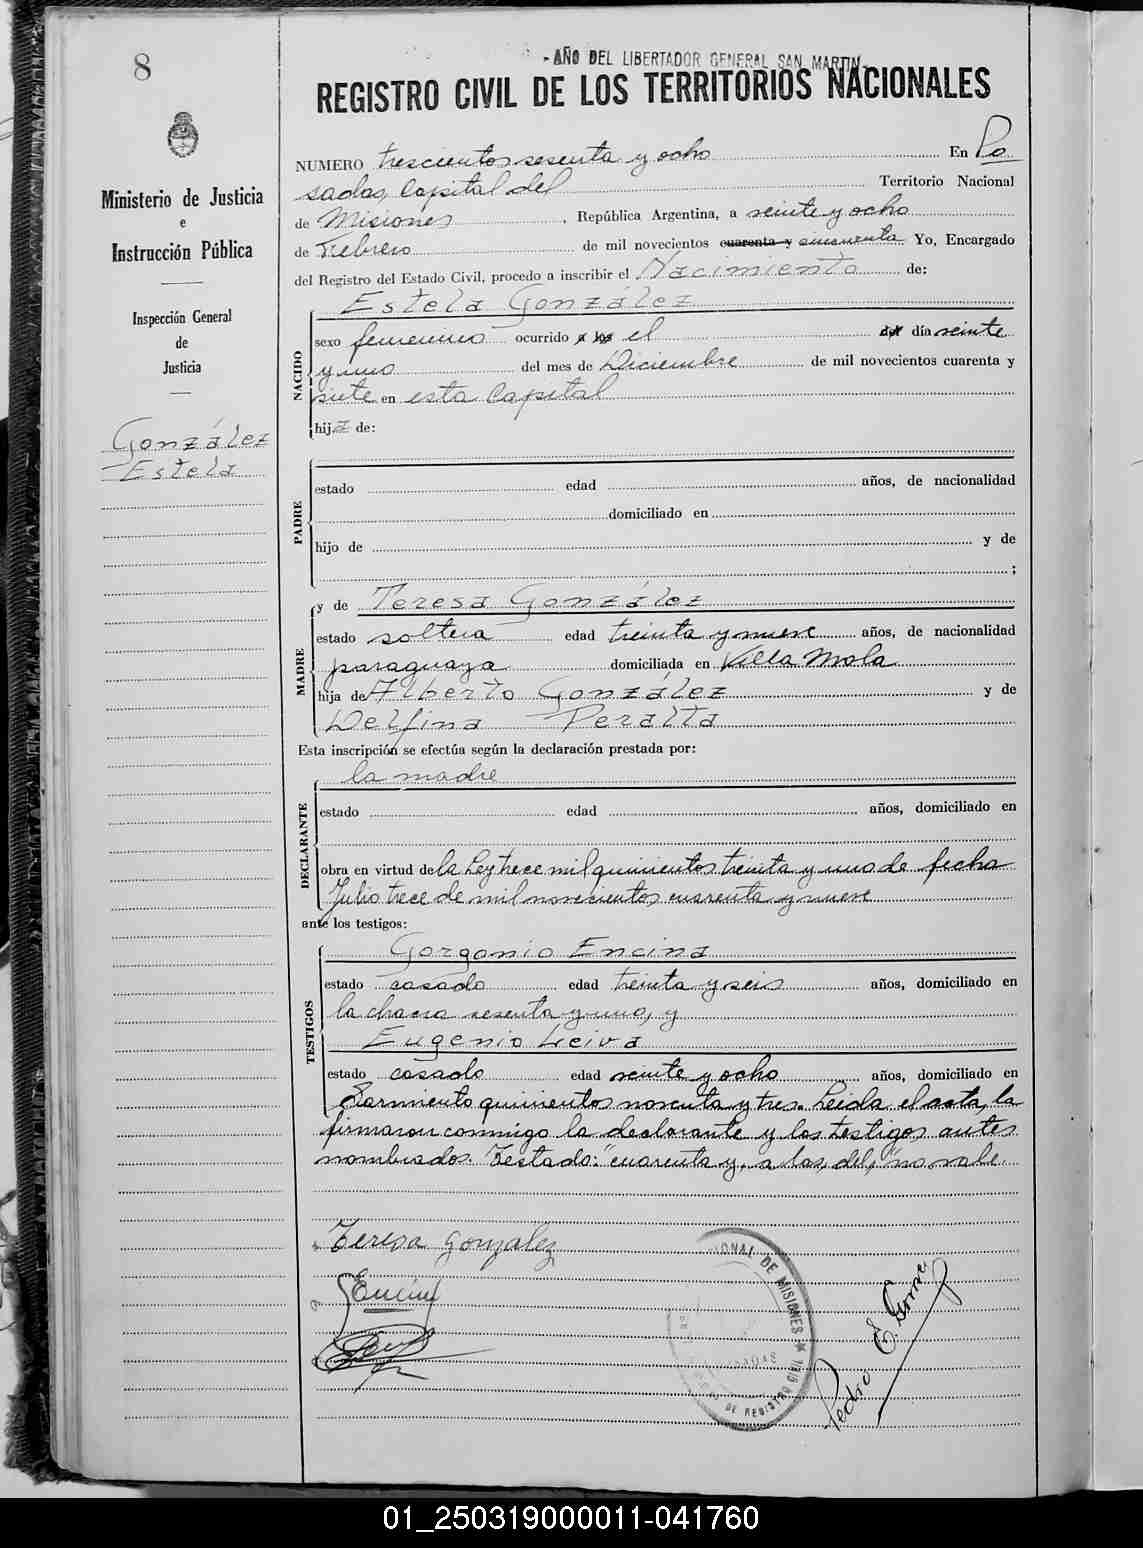 8
- AÑO DEL LIBERTADOR GENERAL SAN MARTIN -
REGISTRO CIVIL DE LOS TERRITORIOS NACIONALES
Ministerio de Justicia
e
Instrucción Pública
Inspección General
de
Justicia
González
Estela
NUMERO trescientos sesenta y ocho En Po
sadas, Capital del Territorio Nacional
de Misiones, República Argentina, a veinte y ocho
de Febrero de mil novecientos cuarenta y cincuenta Yo, Encargado
del Registro del Estado Civil, procedo a inscribir el Nacimiento de:
NACIDO
Estela González
sexo femenino ocurrido a las el del día veinte
y uno del mes de Diciembre de mil novecientos cuarenta y
siete en esta Capital
hija de:
PADRE
estado edad años, de nacionalidad
domiciliado en
hijo de y de
;
MADRE
y de Teresa González
estado soltera edad treinta y nueve años, de nacionalidad
paraguaya domiciliada en Villa Mola
hija de Alberto González y de
Delfina Peralta
Esta inscripción se efectúa según la declaración prestada por:
DECLARANTE
la madre
estado edad años, domiciliado en
obra en virtud de la Ley trece mil quinientos treinta y uno de fecha
Julio trece de mil novecientos cuarenta y nueve
ante los testigos:
TESTIGOS
Gorgonio Encina
estado casado edad treinta y seis años, domiciliado en
la chacra sesenta y uno, y
Eugenio Leiva
estado casado edad veinte y ocho años, domiciliado en
Sarmiento quinientos noventa y tres. Leida el acta, la
firmaron conmigo la declarante y los testigos antes
nombrados. Testado: "cuarenta y, a las, del," no vale.
Teresa Gonzalez
GEncina
IONAL DE MISIONES
DE REGISTRO CIVIL
Pedro E. Gome
01_250319000011-041760